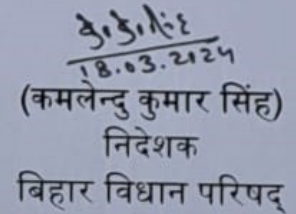 के.के.सिंह
18.03.2024
(कमलेन्दु कुमार सिंह)
निदेशक
बिहार विधान परिषद्